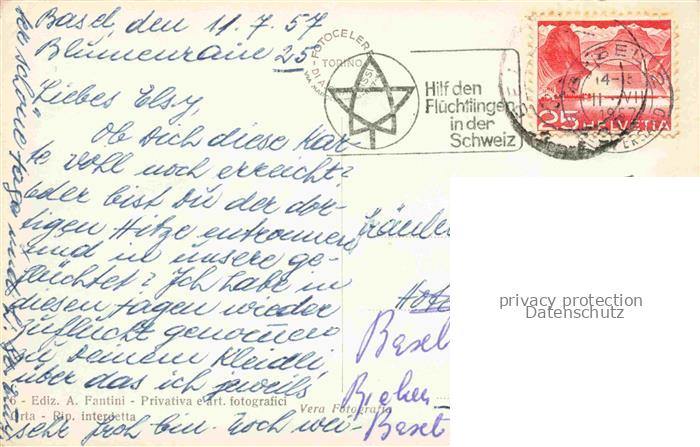 Basel, den 11.7.57
Blumenrain 25
Liebes Elsy,
Ob Dich diese Kar-
te wohl noch erreicht?
Oder bist Du der dor-
tigen Hitze entronnen
und in unsere ge-
flüchtet? Ich habe in
diesen Tagen wieder
Zuflucht genommen
zu Deinem Kleidli,
über das ich jeweils
sehr froh bin. Noch wei-
schöne Tage und
FOTOCELERE
TORINO
Hilf den
Flüchtlingen
in der
Schweiz
25 HELVETIA
Fräulein
Hotel
Basel
Basel
privacy protection
Datenschutz
6 - Ediz. A. Fantini - Privativa e art. fotografici
Orta - Rip. interdetta
Vera Fotografia